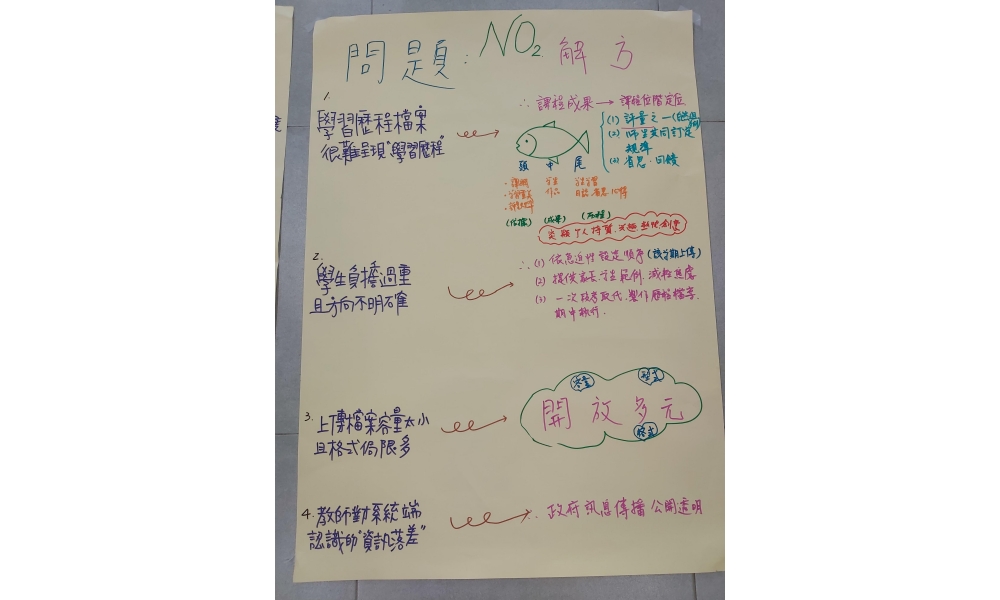 問題: NO2. 解方
1.
學習歷程檔案
很難呈現"學習歷程"
∴ 課程成果→課程位階定位
(1) 評量之一
(2) 師生共同訂定
規準
(3) 省思.回饋
頭 中 尾
(依據) (成果) (歷程)
2.
學生負擔過重
且方向不明確
∴ (1) 依急迫性設定順序(該學期上傳)
(2) 提供範例.減輕焦慮
(3) 一次段考取代.製作歷程檔案.
期中執行.
3. 上傳檔案容量太小
且格式侷限多
容量
型式
開放多元
格式
4. 教師對系統端
認識的"資訊落差"
∴ 政府訊息傳播公開透明